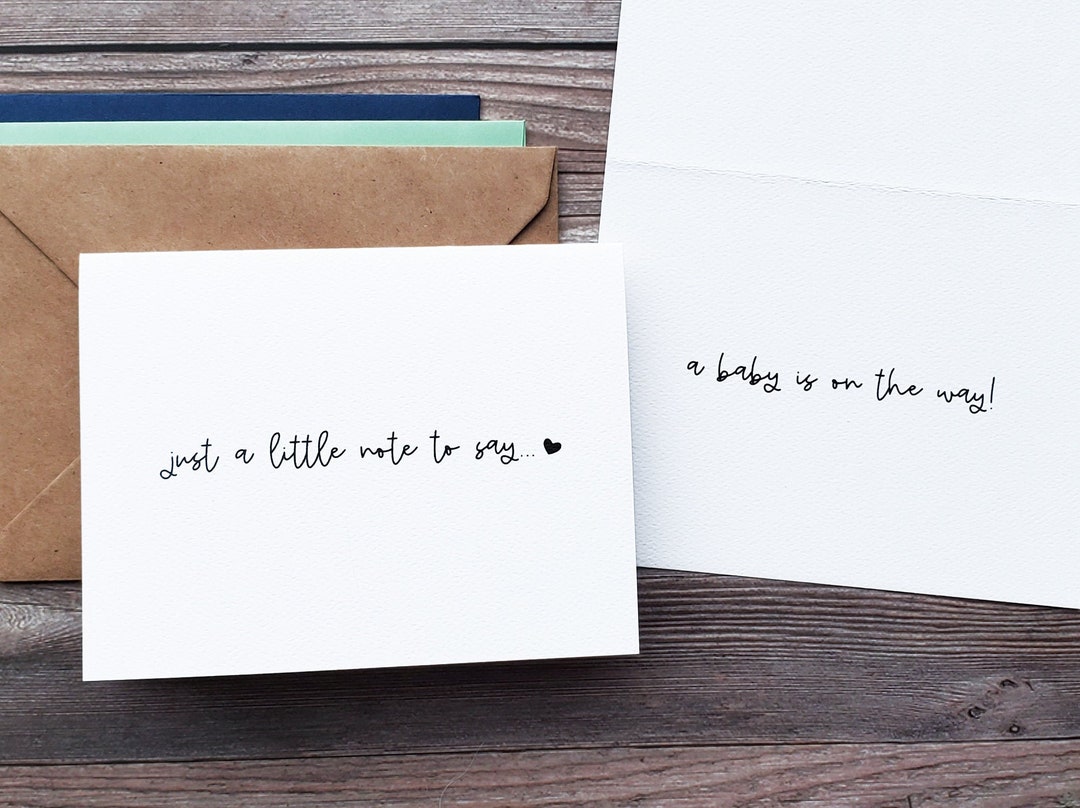 just a little note to say...♥
a baby is on the way!